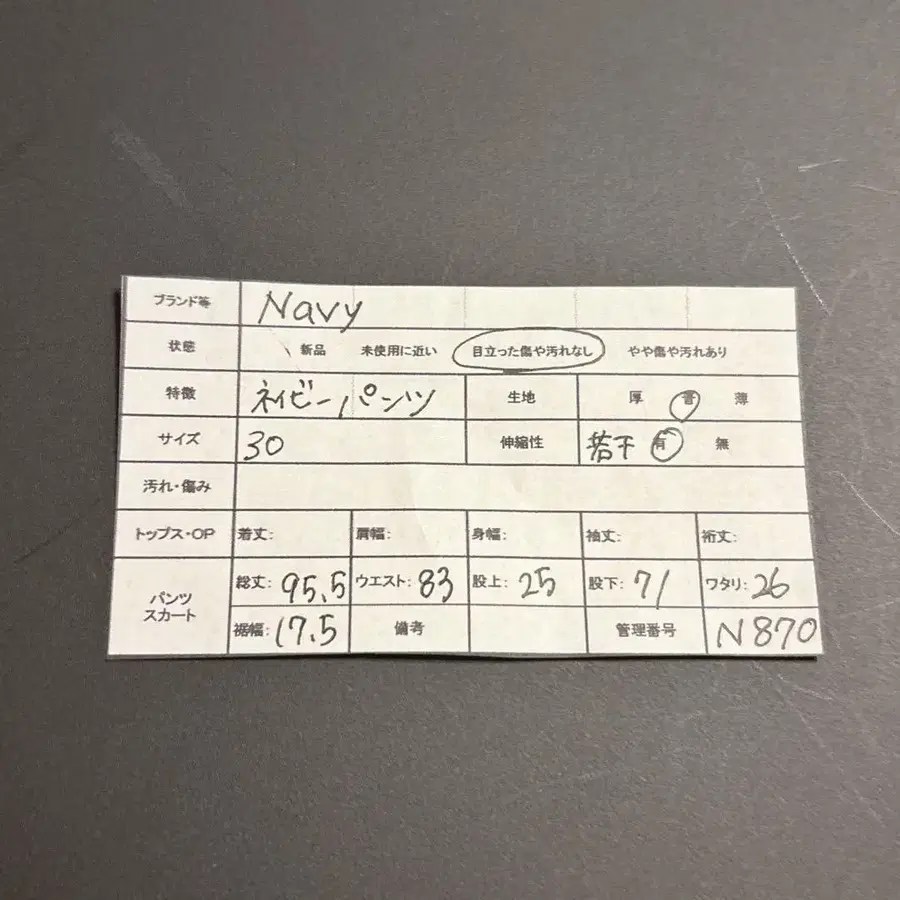 ブランド等 Navy
状態 新品 未使用に近い 目立った傷や汚れなし やや傷や汚れあり
特徴 ネイビーパンツ 生地 厚 普 薄
サイズ 30 伸縮性 若干 有 無
汚れ・傷み
トップス・OP 着丈: 肩幅: 身幅: 袖丈: 裄丈:
パンツ スカート 総丈: 95.5 ウエスト: 83 股上: 25 股下: 71 ワタリ: 26
裾幅: 17.5 備考 管理番号 N870